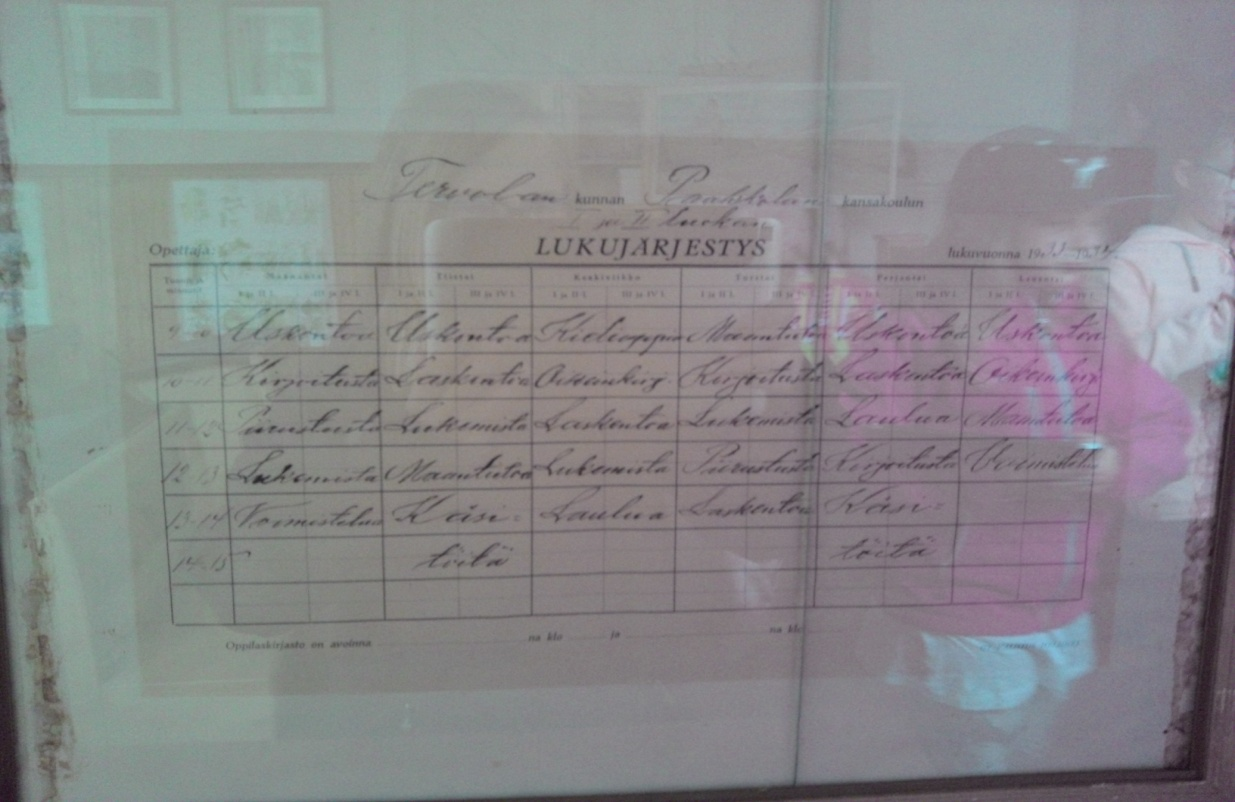 Tervolan kunnan Paakkolan kansakoulun
I ja II luokan
Opettaja: LUKUJÄRJESTYS lukuvuonna 19
Maanantai Tiistai Keskiviikko Torstai Perjantai Lauantai
I ja II l. III ja IV l. I ja II l. III ja IV l. I ja II l. III ja IV l. I ja II l. III ja IV l. I ja II l. III ja IV l. I ja II l. III ja IV l.
9-10 Uskontoa Uskontoa Kielioppia Maantietoa Uskontoa Uskontoa
10-11 Kirjoitusta Laskentoa Oikeinkirj. Kirjoitusta Laskentoa Oikeinkirj.
11-12 Piirustusta Lukemista Laskentoa Lukemista Laulua Maantietoa
12-13 Lukemista Maantietoa Lukemista Piirustusta Kirjoitusta Voimistelua
13-14 Voimistelua Käsi- Laulua Laskentoa Käsi-
14-15 töitä töitä
Oppilaskirjasto on avoinna na klo ja na klo